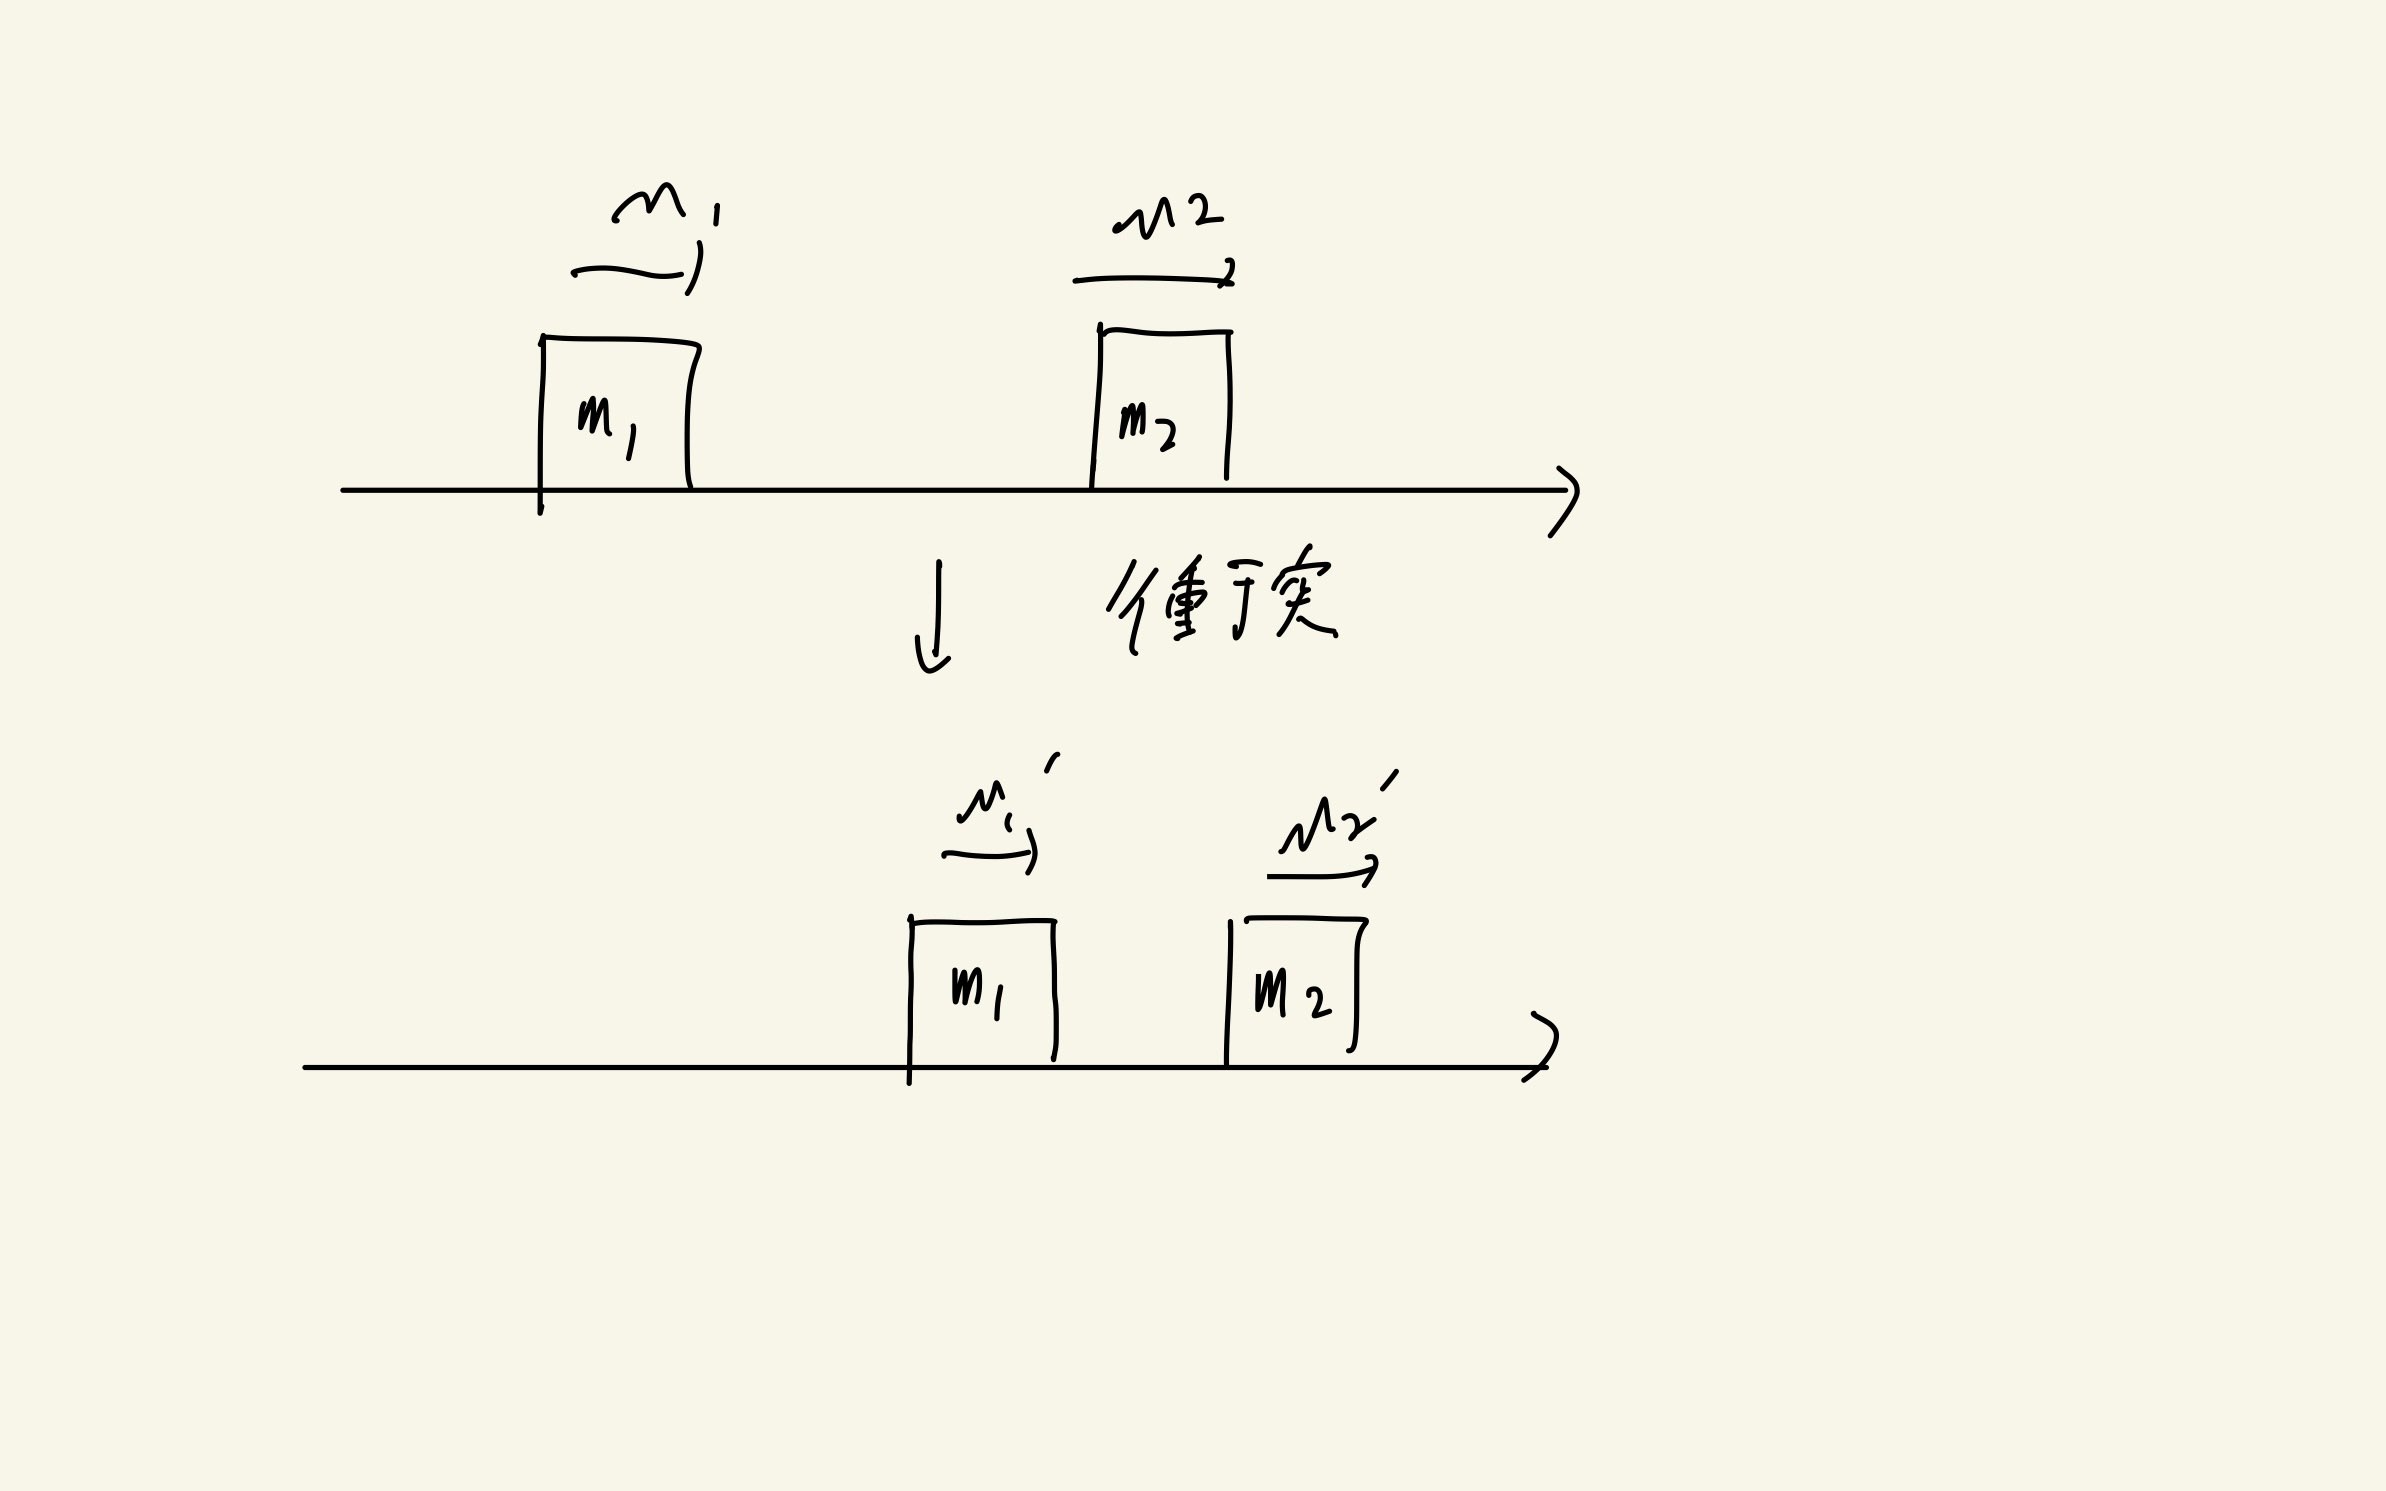 v₁ v₂
m₁ m₂
衝突
v₁′ v₂′
m₁ m₂